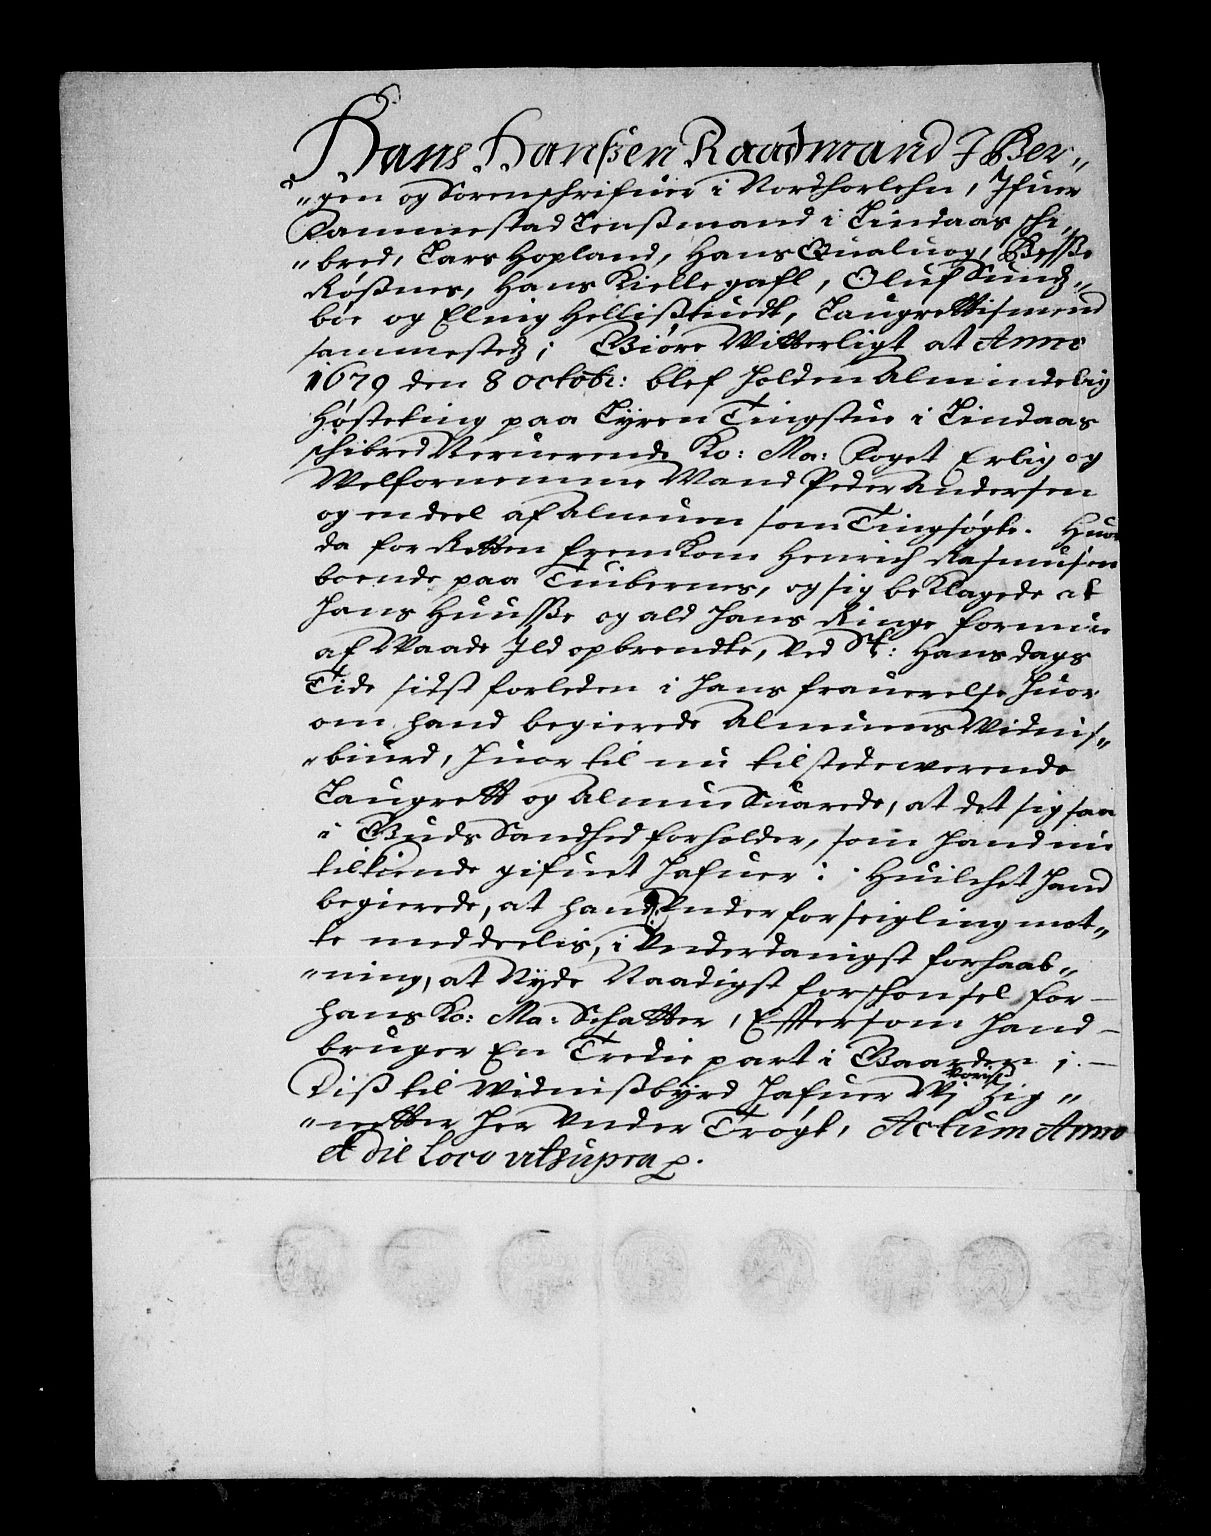 Hans Hanßen Raadmand I Ber„
„gen og Sorenschrifuer i Nordhorlehn, Ifuer
Rammestad Lenßmand i Lindaas schi„
„bred, Lars Hopland, Hans Qualuog, Besse
Røßnes, Hans Kiellegafl, Oluf Sund„
böe og Elnig Hellißtuedt, Laugrettismend
sammested; Giöre Witterligt at Anno
1679 den 8 octobr: blef holden Almindelig
Høsteting paa Lyren Tingstue i Lindaas
schibred Neruerende Ko: Ma: Foget Erlig og
Welfornemme Mand Peder Andersen
og en deel af Almuen som Tingsøgte. Huor
da for Retten fremkom Henrich Rasmusen
boende paa Tuibernes, og sig beklagede at
hans Huusse og ald hans Ringe formue
af Waade Ild opbrendte, ved St: Hansdags
Tide sidst forleden i hans frauerelse huor
om hand begierede Almuens Widnis„
„biurd, huor til nu tilstedewerende
Laugrett og Almue Suarede, at det sig saa
i Guds Sandhed forholder, som hand nu
tilkiende gifuet hafuer: Huilchet hand
begierede, at hand under forseigling mot„
te meddeelis, i Underdanigst forhaab„
„ning, at Nyde Naadigst forschonsel for
hans Ko: Ma: Schatter, Effter som hand
bruger En Tredie part i Gaarden;
Diß til Widnißbyrd hafuer Wj voris Zig„
„netter her under Trøgt, Actum Anno
et die Loco ut supra